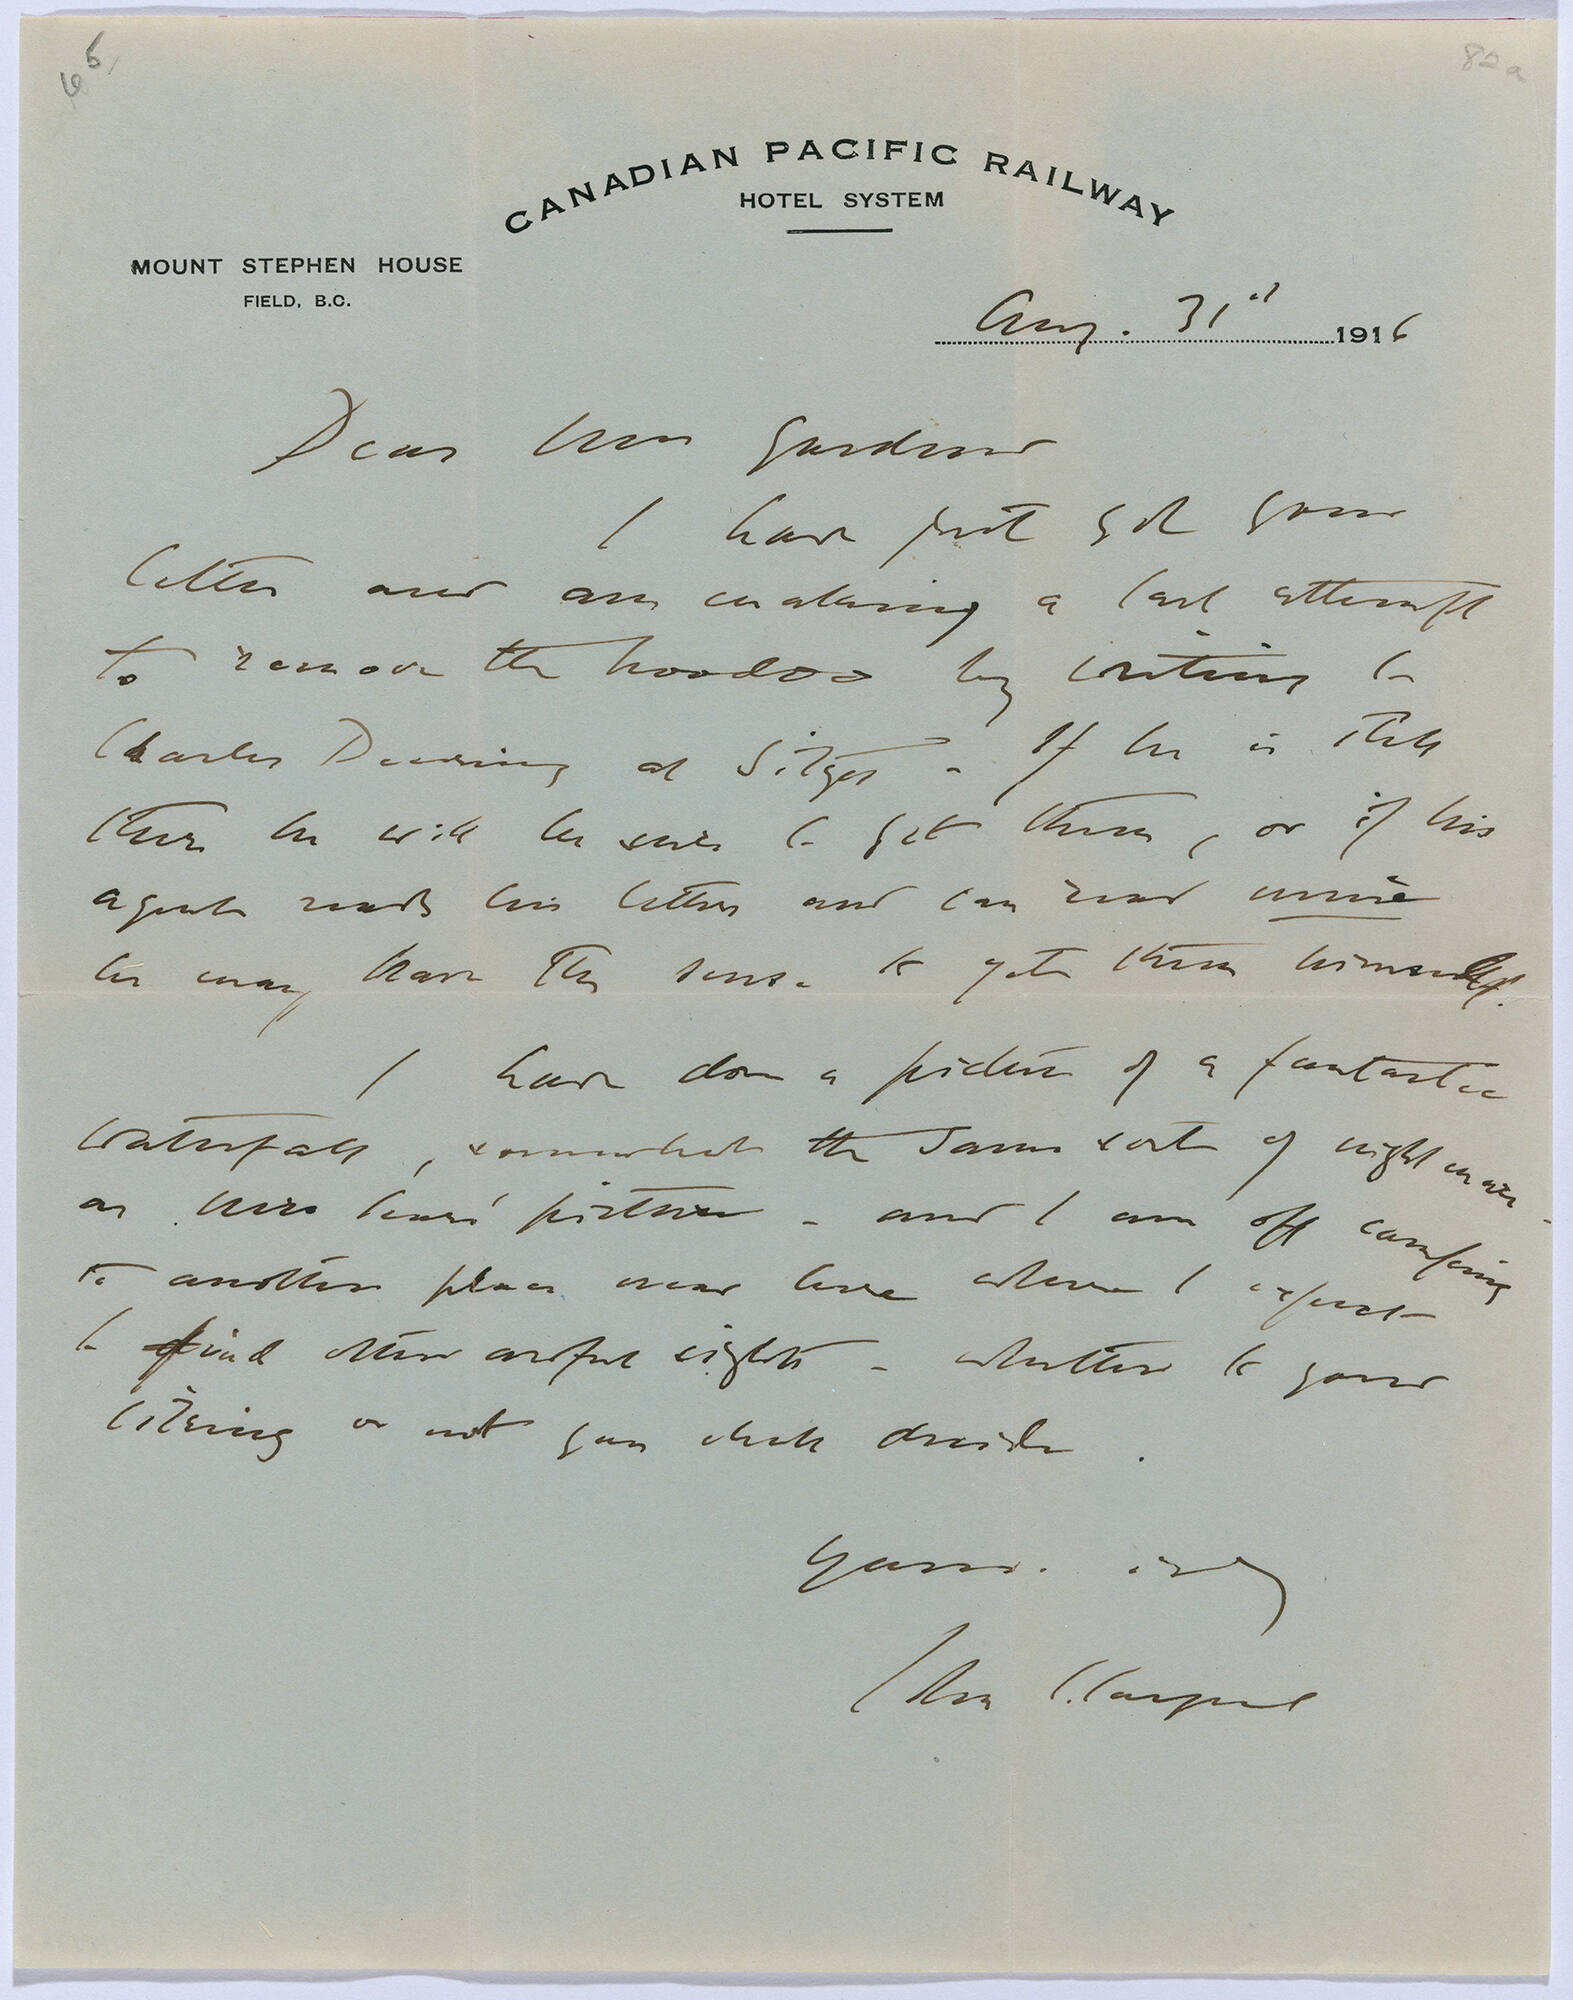 65
82a
CANADIAN PACIFIC RAILWAY
HOTEL SYSTEM
MOUNT STEPHEN HOUSE
FIELD, B.C.
Aug. 31st 1916
Dear Mrs Gardner
I have just got your
letter and am making a last attempt
to remove the hoodoo by writing to
Charles Deering at Sitges - If he is still
there he will be sure to get them, or if his
agent reads his letters and can read mine
he may have the sense to get them himself.
I have done a picture of a fantastic
waterfall, somewhat the same sort of nightmare
as picture - and I am off camping
to another place near here where I expect
to find other awful sights - whether to your
liking or not you shall decide.
Yours.
John S. Sargent